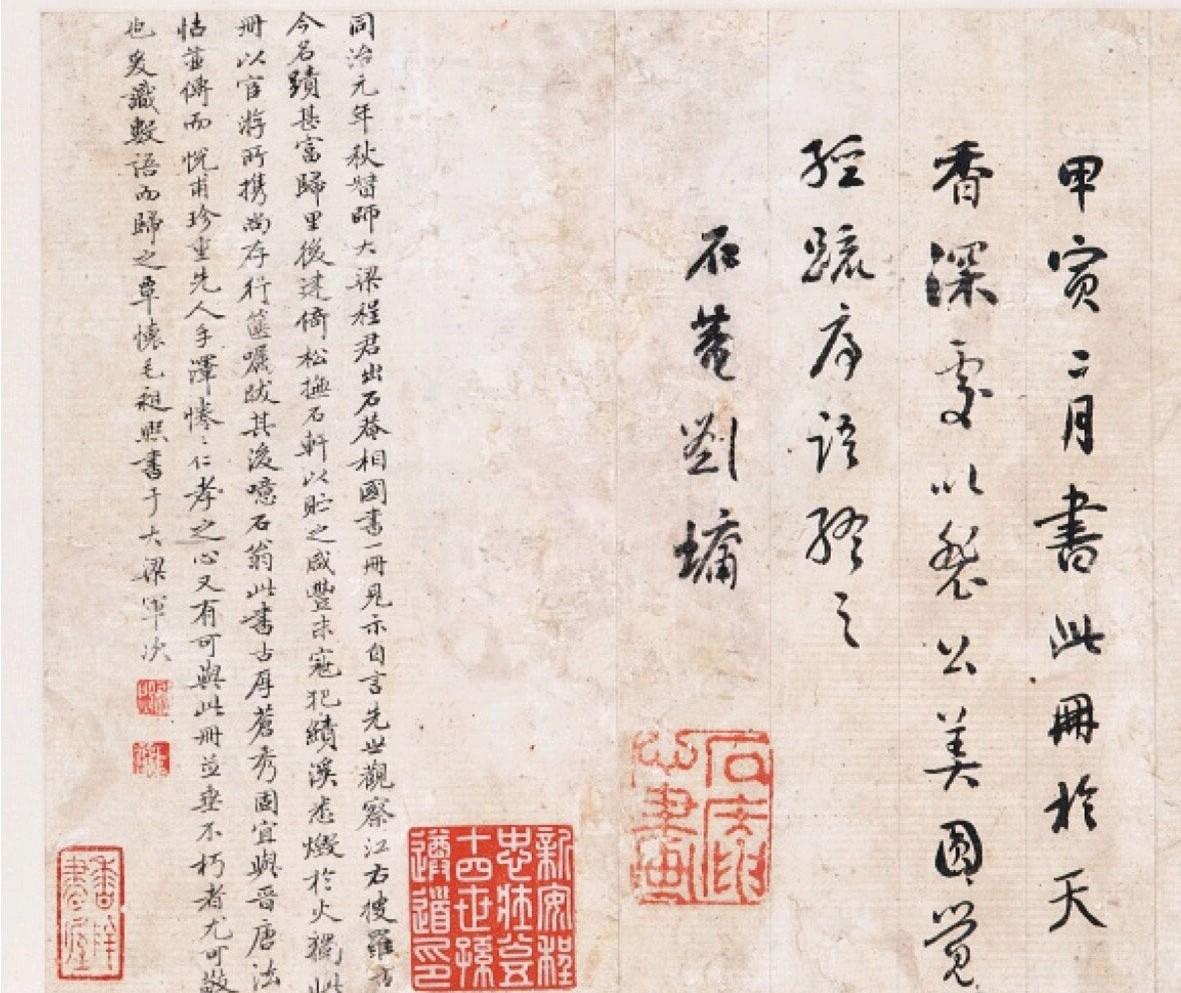 甲寅二月書此冊於天
香深處以裴公美圓覺
經疏序語終之
石菴劉墉
同治元年秋督師大梁程君出石菴相國書一冊見示自言先世觀察江右搜羅古
今名蹟甚富歸里後建倚松撫石軒以貯之咸豐末寇犯績溪悉燬於火獨此
冊以官游所攜尚存行篋囑跋其後噫石翁此書古厚蒼秀固宜與晉唐法
帖並傳而悅甫珍重先人手澤惓〻仁孝之心又有可與此冊並垂不朽者尤可敬
也爰識數語而歸之覃懷毛昶熙書于大梁軍次
新安程
忠壯公
十四世孫
遵道印